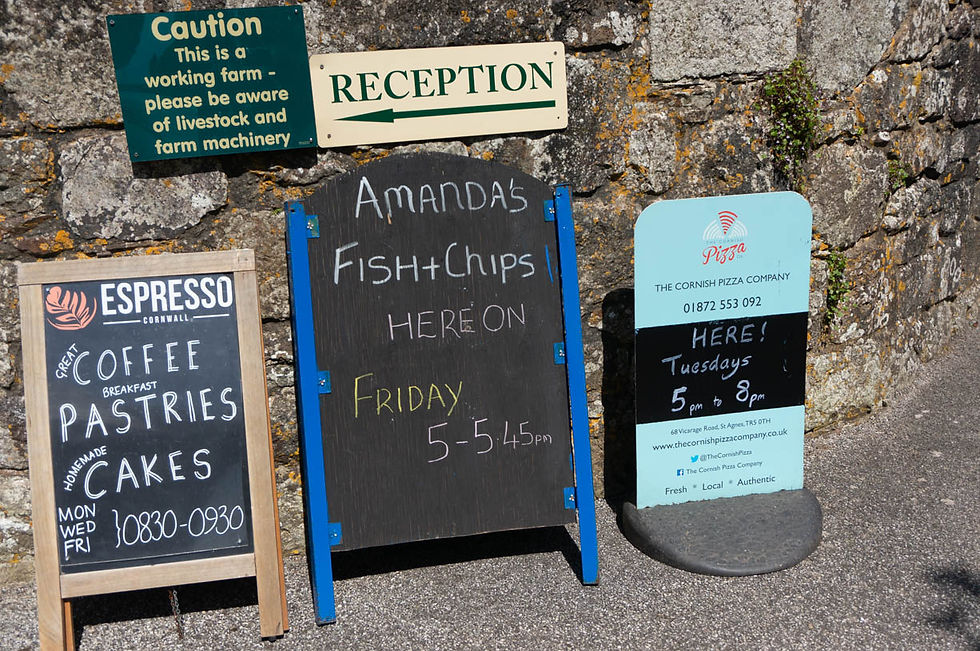 Caution
This is a
working farm -
please be aware
of livestock and
farm machinery
RECEPTION
ESPRESSO
CORNWALL
GREAT
COFFEE
BREAKFAST
PASTRIES
HOMEMADE
CAKES
MON
WED
FRI
}0830-0930
AMANDA'S
FISH+CHIPS
HERE ON
FRIDAY
5-5.45pm
THE CORNISH
Pizza
Co.
THE CORNISH PIZZA COMPANY
01872 553 092
HERE!
Tuesdays
5pm to 8pm
68 Vicarage Road, St Agnes, TR5 0TH
www.thecornishpizzacompany.co.uk
@TheCornishPizza
The Cornish Pizza Company
Fresh * Local * Authentic